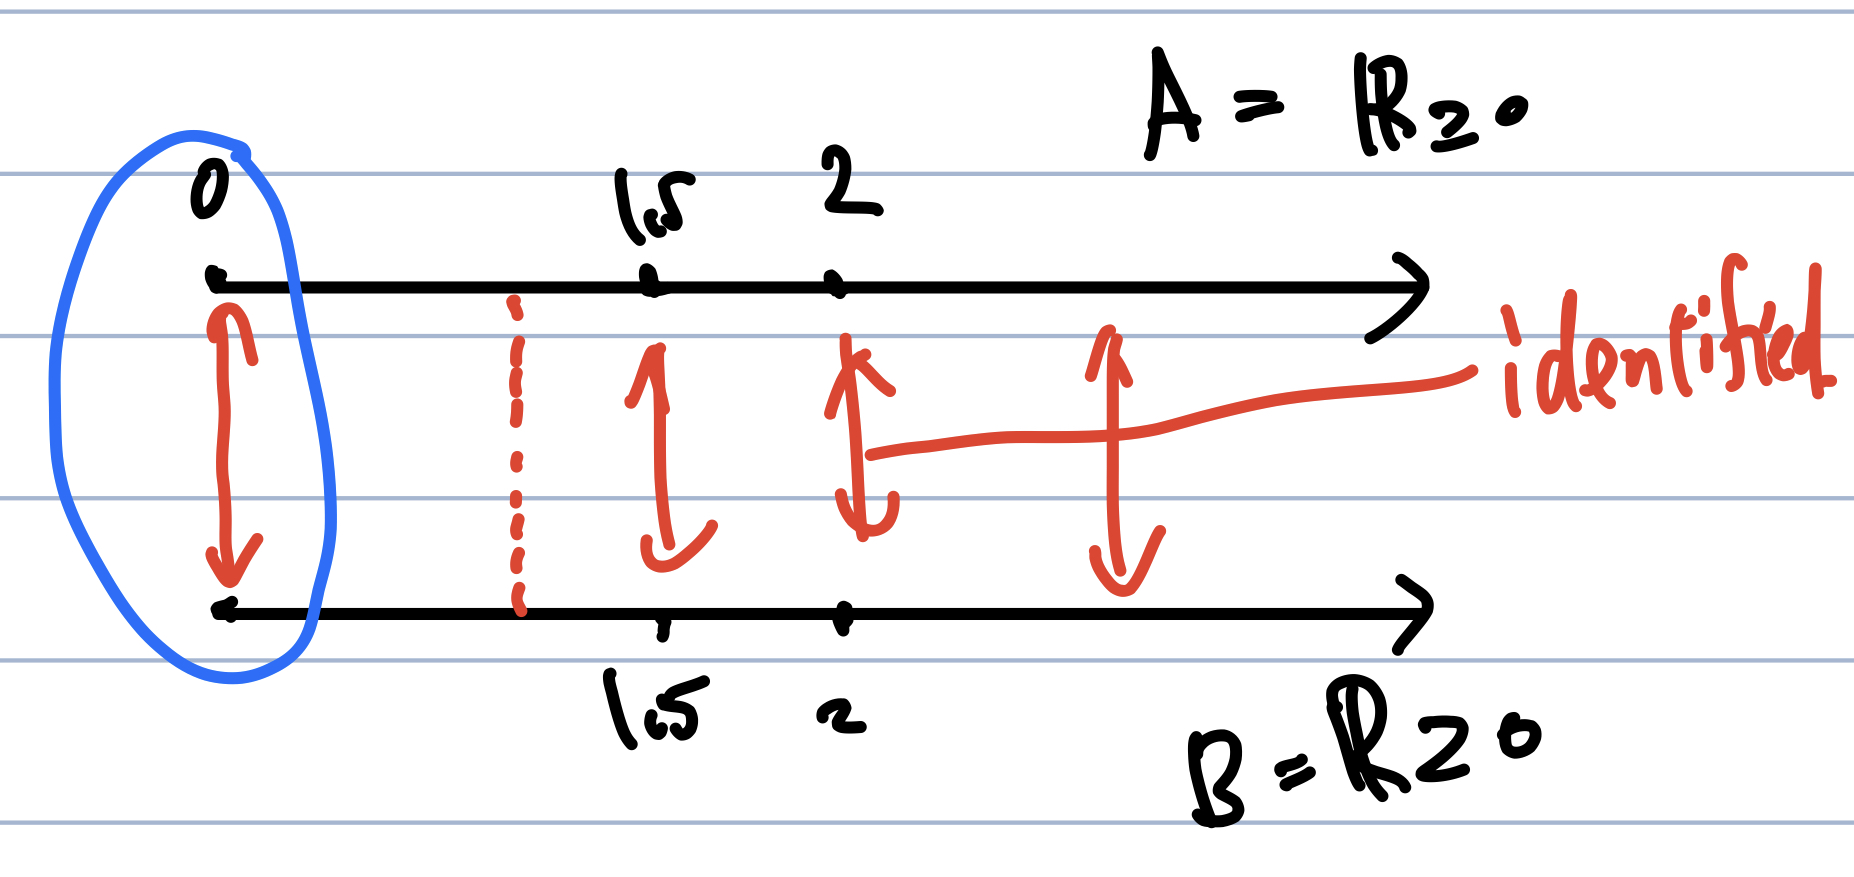 A = ℝ≥0
0 1.5 2
identified
1.5 2
B = ℝ≥0